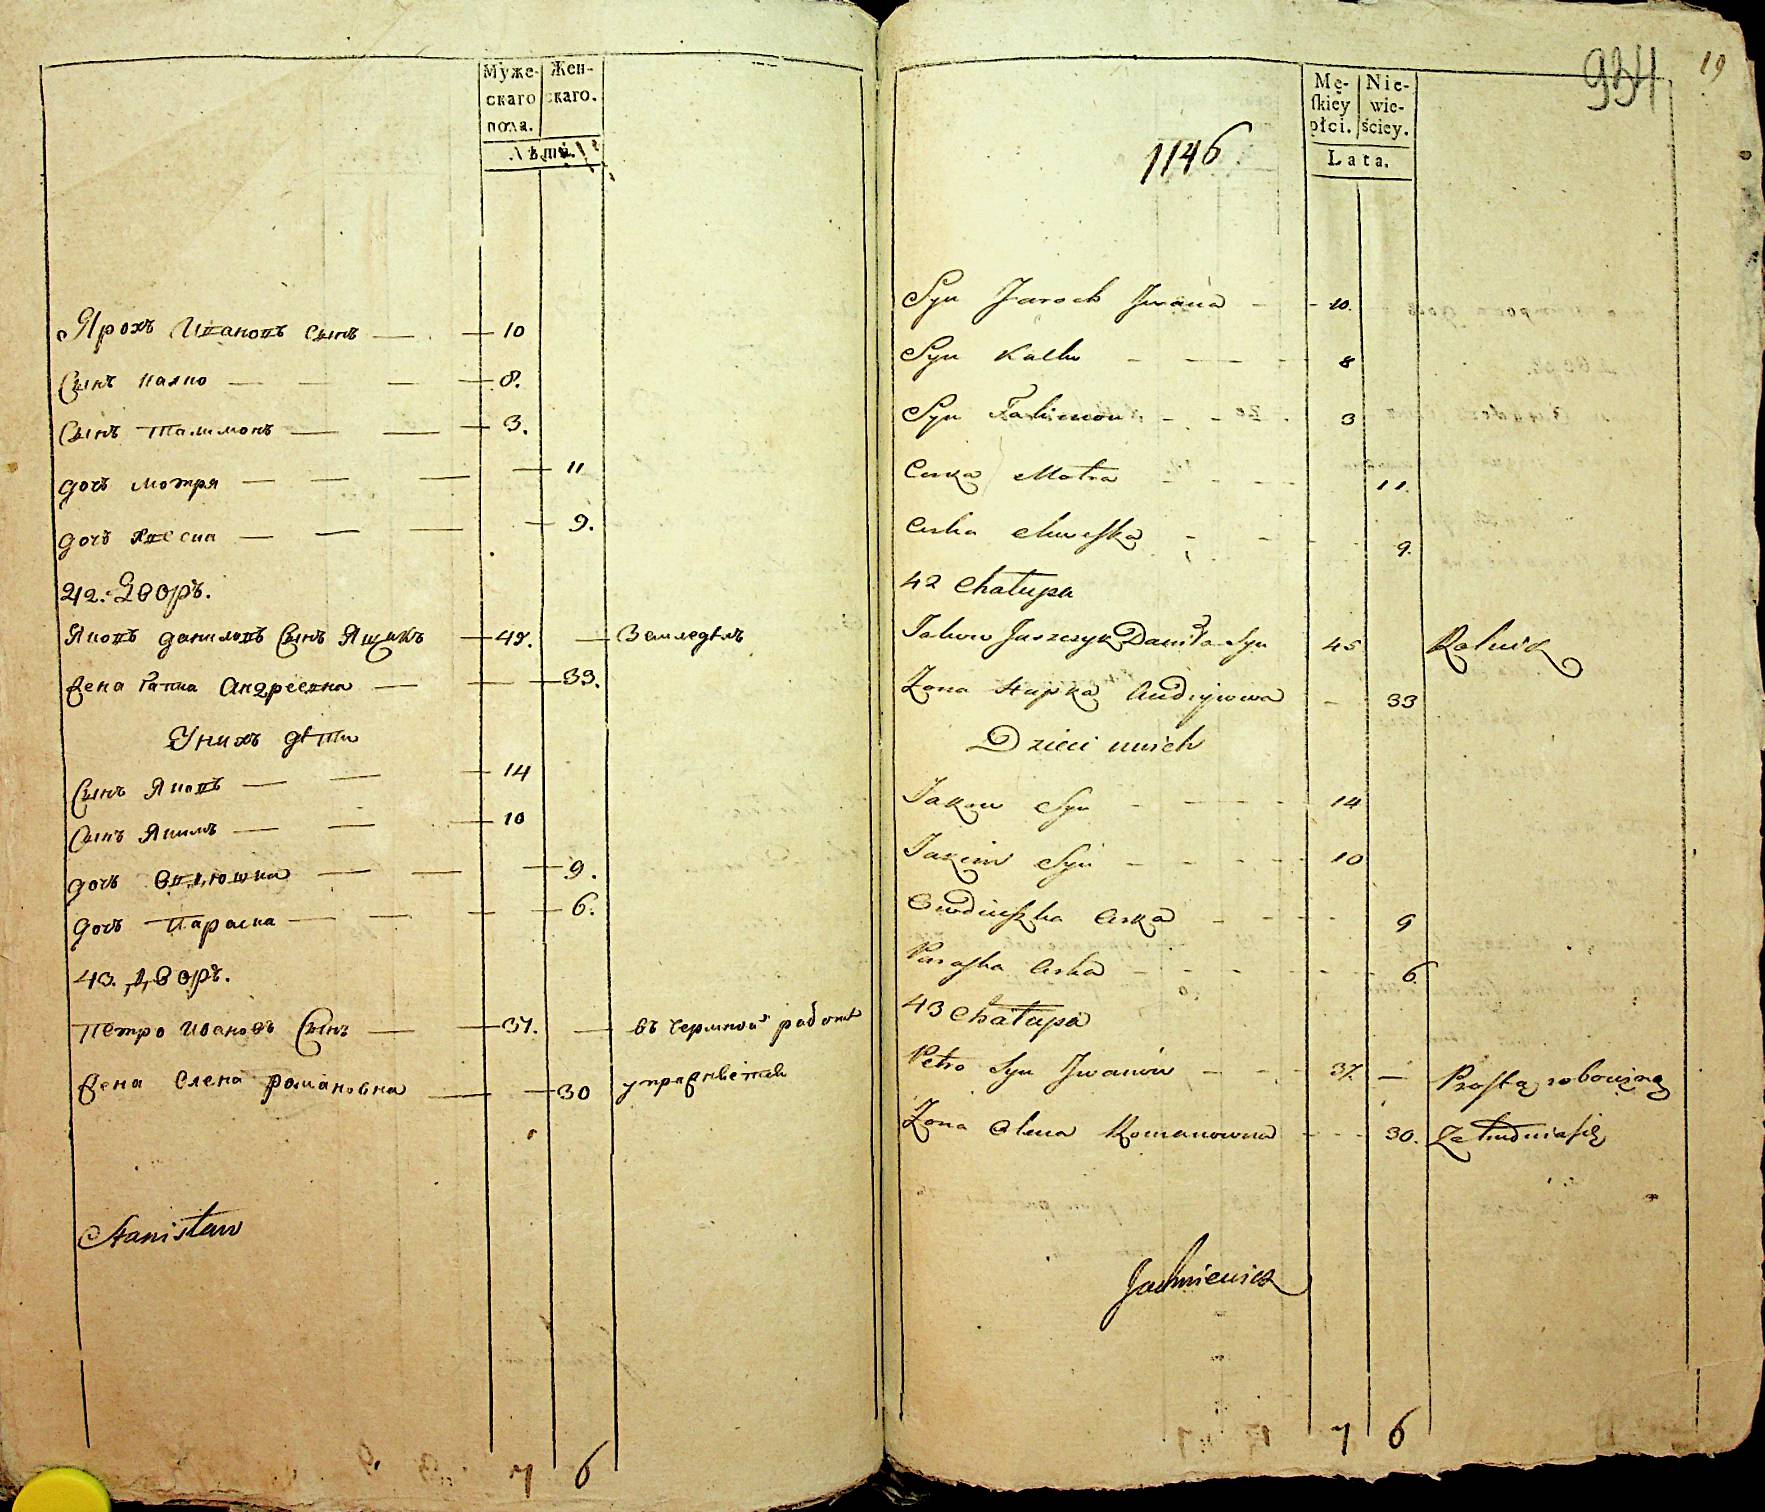 Муже-
скаго
пола.
Жен-
скаго.
Лѣта.
Ярохъ Ивановъ сынъ 10
Сынъ Калко 8.
Сынъ Талимонъ 3.
дочъ Мотря 11
дочъ 9.
42. Дворъ.
Яковъ даниловъ Сынъ Ящикъ 45. Земледѣлъ
Жена Гапка Андреевна 33.
Унихъ дѣти
Сынъ Яковъ 14
Сынъ Якимъ 10
дочъ 9.
дочъ Параска 6.
43. Дворъ.
Петро Ивановъ Сынъ 37. въ черной работе
Жена Елена Романовна 30 упражняется
Stanisław
7 6
934
19
1146
Mę-
skiey
płci.
Nie-
wie-
ściey.
Lata.
Syn Jaroch Jwana 10.
Syn 8
Syn Talimon 3
Curka Motra 11.
Curka 9.
42 Chałupa
Jakow Jaszczyk Daniła Syn 45 Rolnik
Żona Hapka Andryiowa 33
Dzieci unich
Jakow Syn 14
Jakim Syn 10
Curka 9
Paraska Curka 6
43 Chałupa
Petro Syn Jwanów 37. Prostą robocizną
Żona Olena Romanowna 30. Zatrudnia się
Jachniewicz
7 6